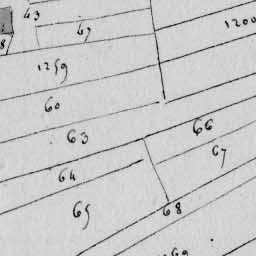 43
47
1200
8
1259
60
63
66
67
64
65
68